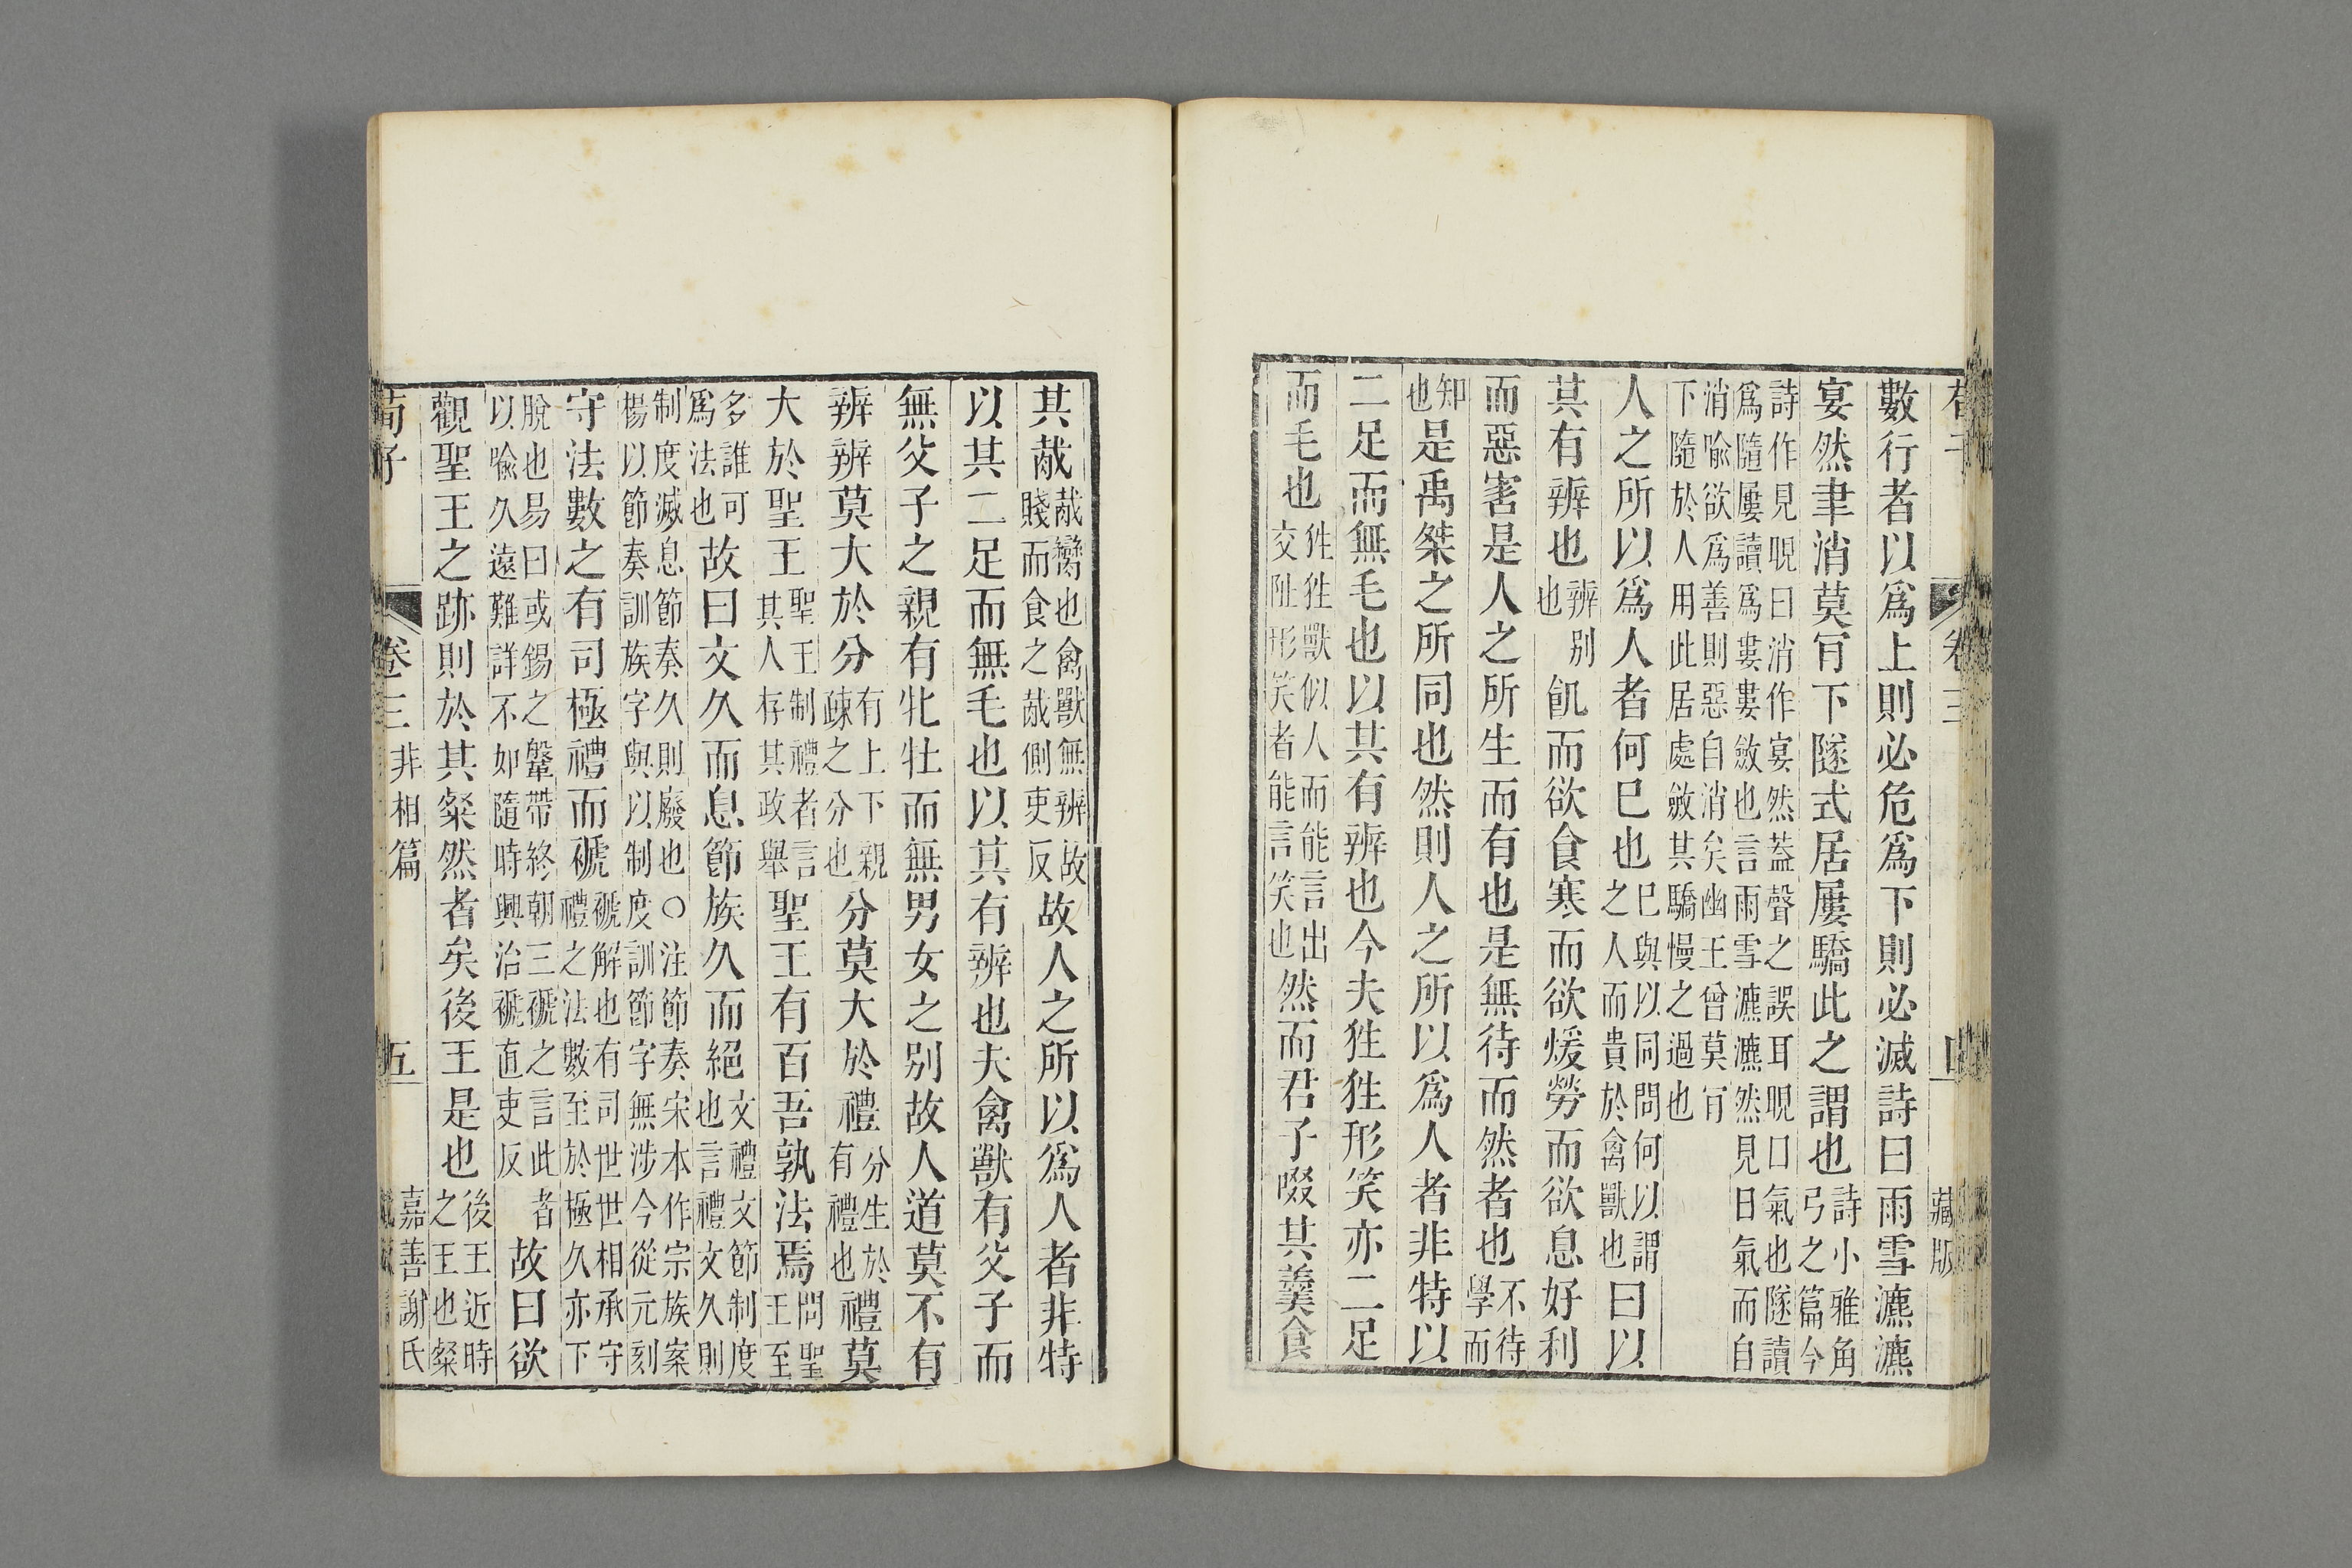 荀子 卷三 四 藏版
數行者以爲上則必危爲下則必滅詩曰雨雪瀌瀌
宴然聿消莫肎下隧式居屢驕此之謂也詩小雅角弓之篇今
詩作見晛曰消作宴然蓋聲之誤耳晛日氣也隧讀
爲隨屢讀爲婁婁斂也言雨雪瀌瀌然見日氣而自
消喻欲爲善則惡自消矣幽王曾莫肎
下隨於人用此居處斂其驕慢之過也
人之所以爲人者何巳也巳與以同問何以謂之人而貴於禽獸也曰以
其有辨也辨别也飢而欲食寒而欲煖勞而欲息好利
而惡害是人之所生而有也是無待而然者也不待學而
知也是禹桀之所同也然則人之所以爲人者非特以
二足而無毛也以其有辨也今夫狌狌形笑亦二足
而毛也狌狌獸似人而能言出交阯形笑者能言笑也然而君子啜其羹食
其胾胾臠也禽獸無辨故賤而食之胾側吏反故人之所以爲人者非特
以其二足而無毛也以其有辨也夫禽獸有父子而
無父子之親有牝牡而無男女之别故人道莫不有
辨辨莫大於分有上下親疎之分也分莫大於禮分生於有禮也禮莫
大於聖王聖王制禮者言其人存其政舉聖王有百吾孰法焉問聖王至
多誰可爲法也故曰文久而息節族久而絕文禮文節制度也言禮文久則
制度滅息節奏久則廢也○注節奏宋本作宗族案
楊以節奏訓族字與以制度訓節字無涉今從元刻
守法數之有司極禮而褫褫解也有司世世相承守禮之法數至於極久亦下
脫也易曰或錫之鞶帶終朝三褫之言此者
以喻久遠難詳不如隨時興治褫直吏反故曰欲
觀聖王之跡則於其粲然者矣後王是也後王近時之王也粲
荀子 卷三 非相篇 五 嘉善謝氏